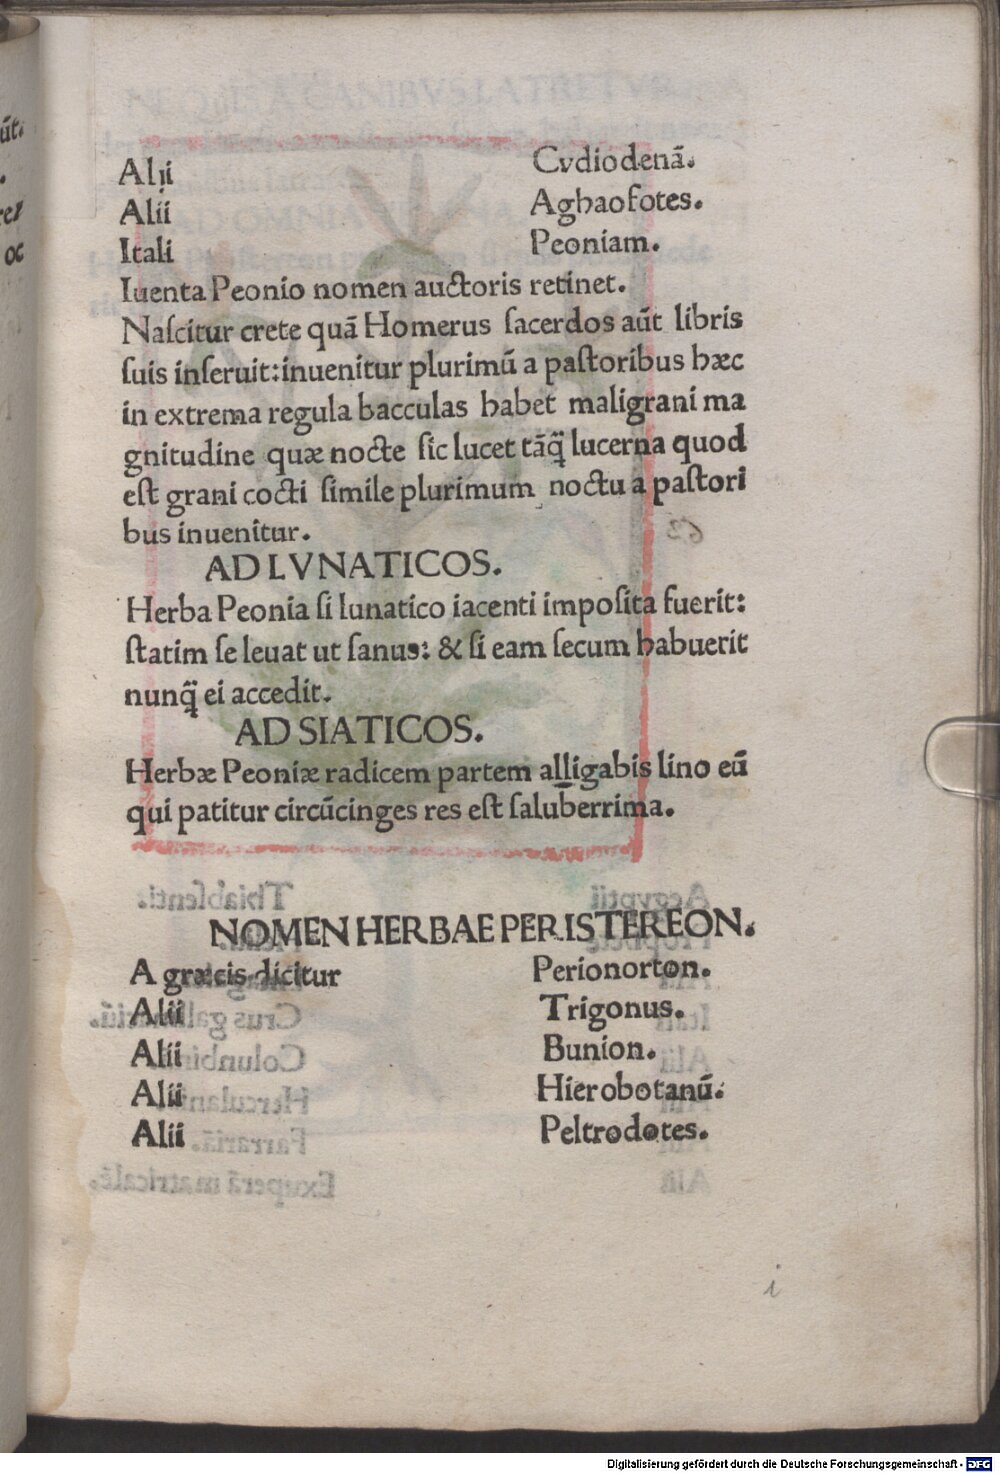 Alii Cvdiodenā.
Alii Aghaofotes.
Itali Peoniam.
Iuenta Peonio nomen auctoris retinet.
Naſcitur crete quā Homerus ſacerdos aūt libris
ſuis inſeruit: inuenitur plurimū a paſtoribus hæc
in extrema regula bacculas habet maligrani ma
gnitudine quæ nocte ſic lucet tāq̄ lucerna quod
eſt grani cocti ſimile plurimum noctu a paſtori
bus inuenitur.
AD LVNATICOS.
Herba Peonia ſi lunatico iacenti impoſita fuerit:
ſtatim ſe leuat ut ſanus: & ſi eam ſecum habuerit
nunq̄ ei accedit.
AD SIATICOS.
Herbæ Peoniæ radicem partem alligabis lino eū
qui patitur circūcinges res eſt ſaluberrima.
NOMEN HERBAE PERISTEREON.
A græcis dicitur Perionorton.
Alii Trigonus.
Alii Bunion.
Alii Hierobotanū.
Alii Peltrodotes.
i
Digitalisierung gefördert durch die Deutsche Forschungsgemeinschaft - DFG